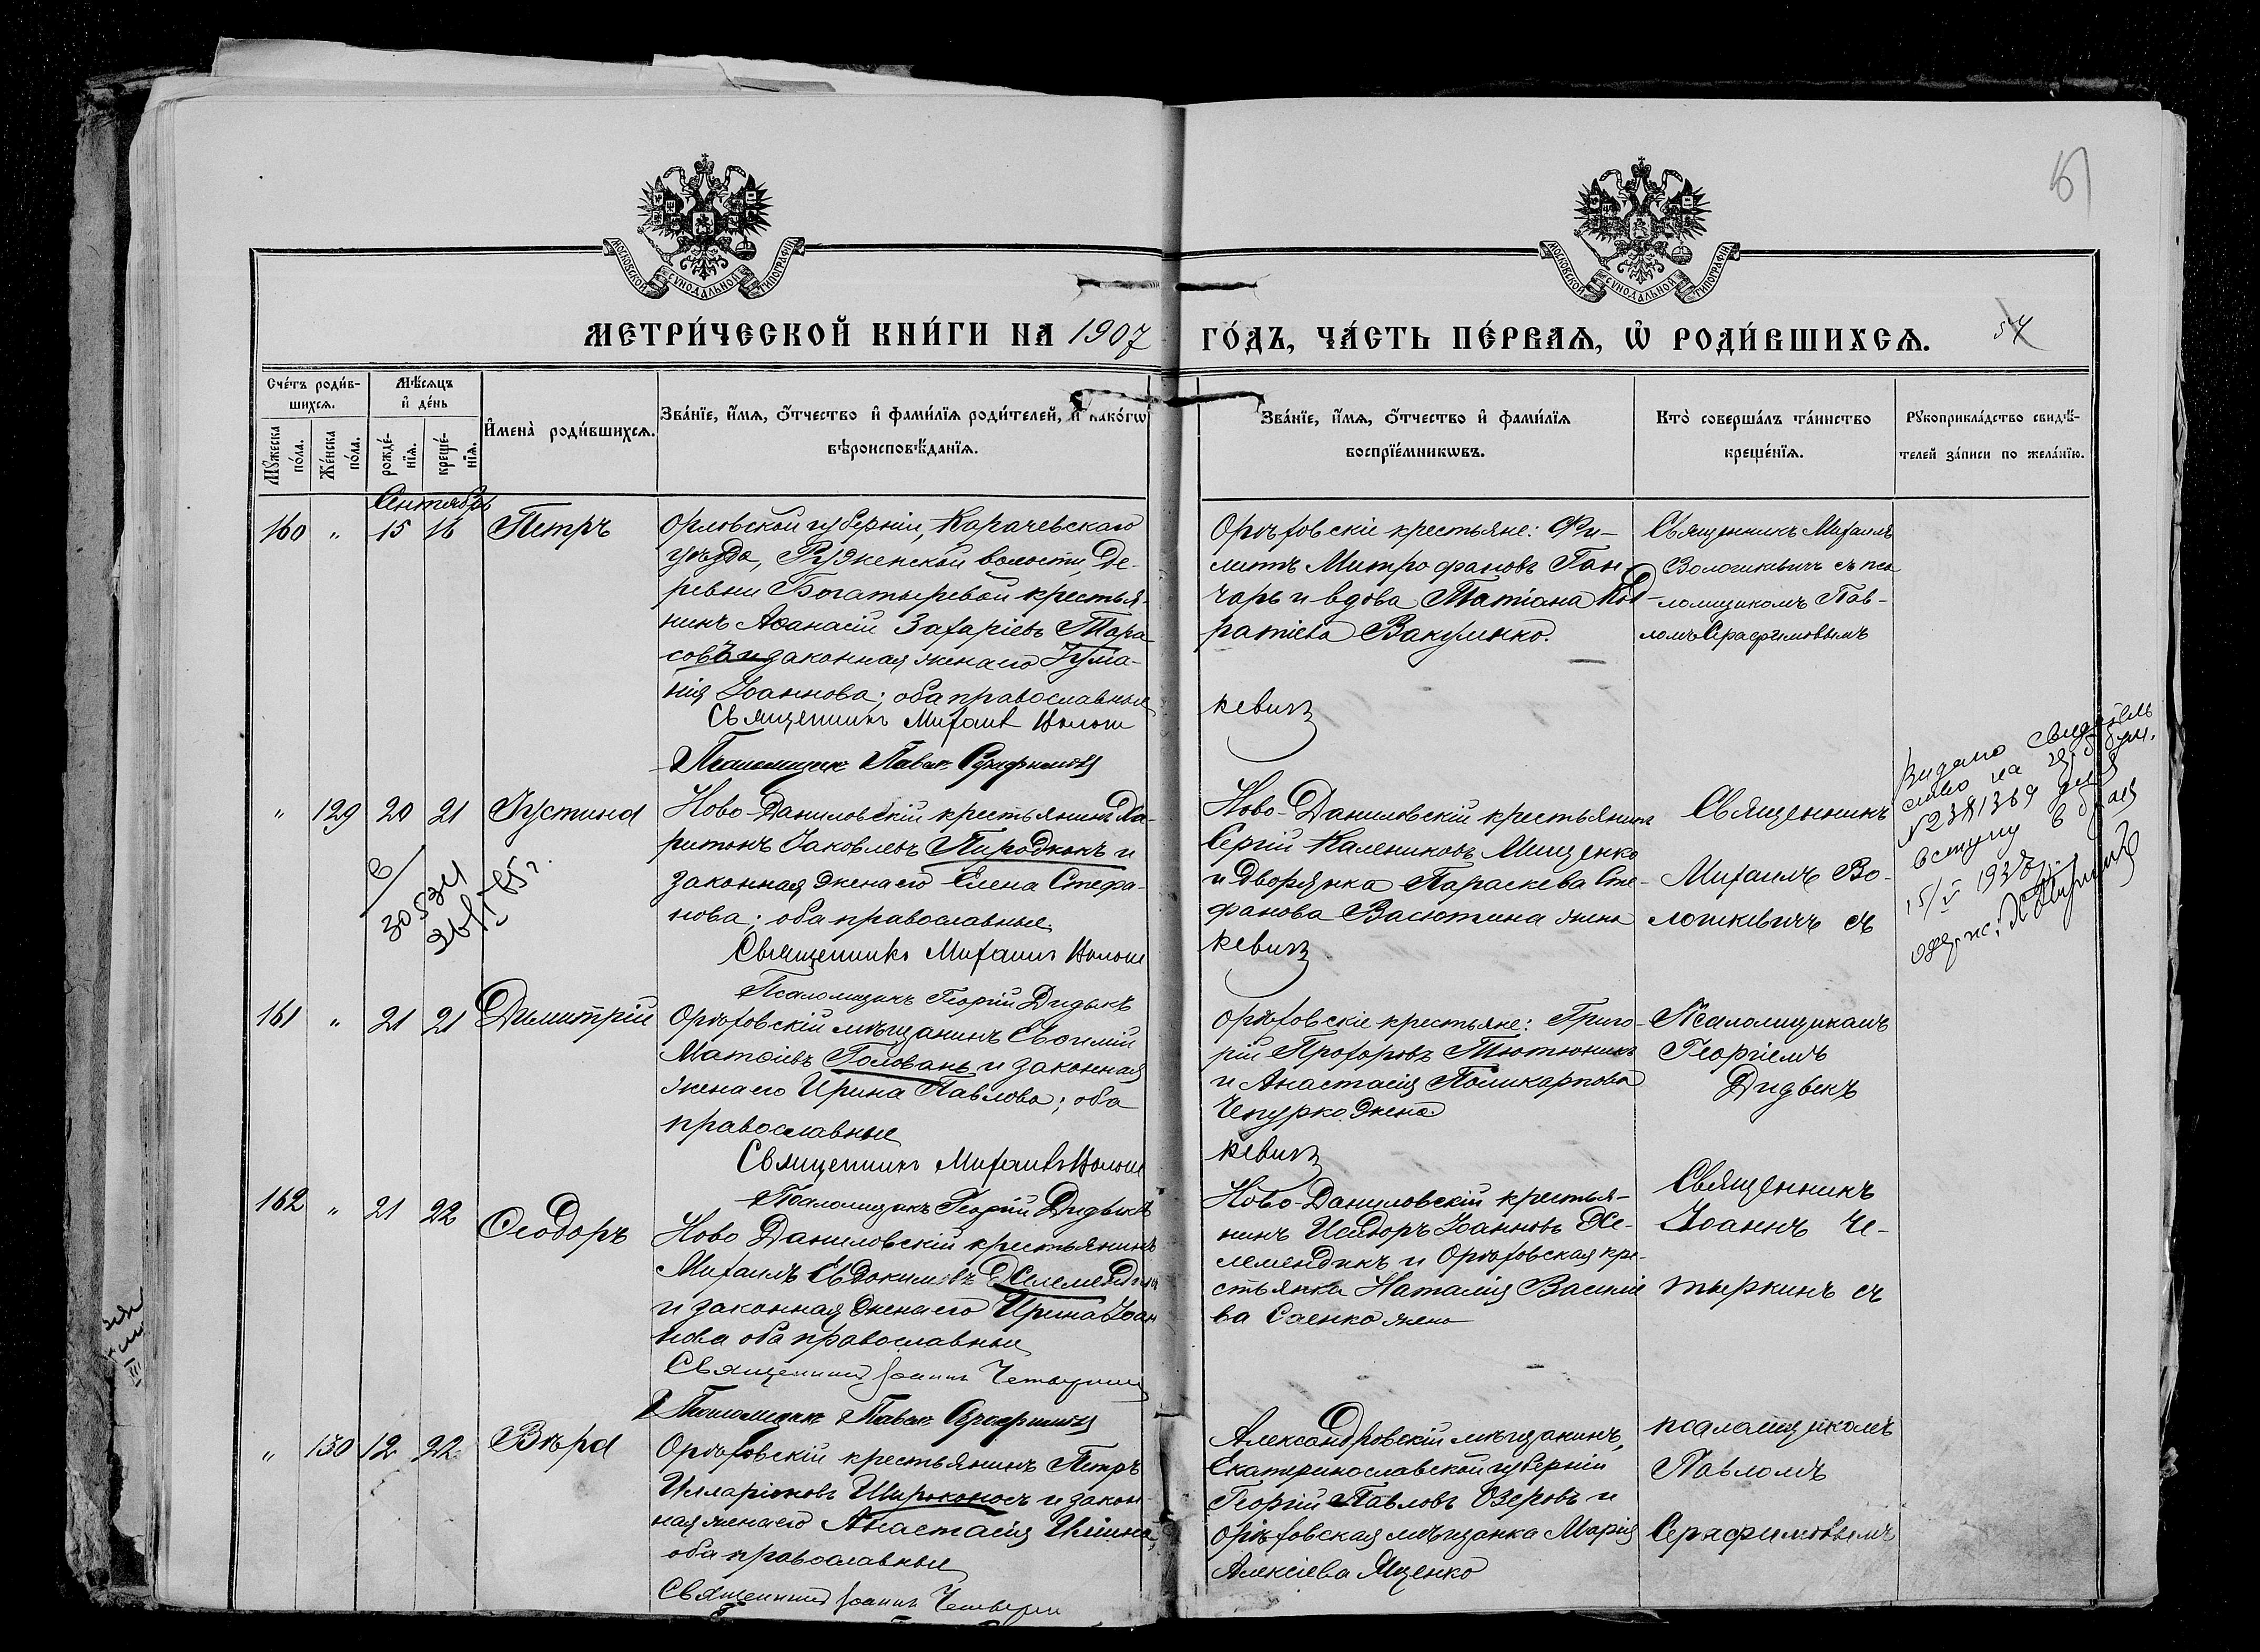 57
МОСКОВСКОЙ СУНОДАЛЬНОЙ ТИПОГРАФІИ
МОСКОВСКОЙ СУНОДАЛЬНОЙ ТИПОГРАФІИ
МЕТРИ́ЧЕСКОЙ КНИ́ГИ НА 1907 ГО́ДЪ, ЧА́СТЬ ПЕ́РВАѦ, Ѡ҆ РОДИ́ВШИХСѦ.
57
Сче́тъ роди́в-
шихсѧ.
Мѣ́сѧцъ
и҆ де́нь
Мꙋ́жеска
по́ла.
Же́нска
по́ла.
рожде́-
нїѧ.
креще́-
нїѧ.
И҆мена̀ роди́вшихсѧ.
Зва́нїе, и҆́мѧ, ѻ҆́тчество и҆ фами́лїѧ роди́телей, и҆ како́гѡ
вѣроисповѣ́данїѧ.
Зва́нїе, и҆́мѧ, ѻ҆́тчество и҆ фами́лїѧ
воспрїе́мникѡвъ.
Кто̀ соверша́лъ та́инство
креще́нїѧ.
Рꙋкоприкла́дство свидѣ́-
телей за́писи по жела́нїю.
Сентябрь
160 " 15 16 Петръ
Орловской губерніи, Карачевскаго
уѣзда, Руженской волости, де-
ревни Богатыревой крестья-
нинъ Аѳанасій Захаріевъ Тара-
совъ и законная жена его Іуліа-
нія Іоаннова; оба православные
Священникъ Михаилъ Волош
кевичъ
Псаломщикъ Павелъ Серафимовъ
Орѣховскіе крестьяне: Фи-
липъ Митрофановъ Ган-
чарь и вдова Татіана Код-
ратіева Вакуленко.
Священникъ Михаилъ
Волошкевичъ съ пса
ломщикомъ Пав-
ломъ Серафимовымъ
" 129 20 21 Іустина
Ново-Даниловскій крестьянинъ Ха-
ритонъ Іаковлевъ Пиродконъ и
законная жена его Елена Стефа-
нова; оба православные
Священникъ Михаилъ Волош
кевичъ
Псаломщикъ Георгій Дидыкъ
Ново-Даниловскій крестьянинъ
Сергій Калениковъ Мищенко
и дворянка Параскева Сте-
фанова Васютина жена
Священникъ
Михаилъ Во-
лошкевичъ съ
Видано свидетель
ство на
вступу в брак
15/V 1928 р.
161 " 21 21 Димитрій
Орѣховскій мѣщанинъ Евѳимій
Матѳіевъ Головань и законная
жена его Ирина Павлова; оба
православные
Священникъ Михаилъ Волош
кевичъ
Псаломщикъ Георгій Дидыкъ
Орѣховскіе крестьяне: Григо-
рій Прохоровъ Тютюникъ
и Анастасія Поликарпова
Чепурко жена
Псаломщикомъ
Георгіемъ
Дидыкъ
162 " 21 22 Ѳеодоръ
Ново Даниловскій крестьянинъ
Михаилъ Евдокимовъ Желемендикъ
и законная жена его Ирина Іоан
нова оба православные
Священникъ Іоаннъ Четыркинъ
Псаломщикъ Павелъ Серафимовъ
Ново-Даниловскій крестья-
нинъ Исидоръ Іоанновъ Же-
лемендикъ и Орѣховская кре-
стьянка Наталія Василіе
ва Саенко жена
Священникъ
Іоаннъ Че-
тыркинъ съ
" 130 12 22 Вѣра
Орѣховскій крестьянинъ Петръ
Илларіоновъ Широконосъ и закон-
ная жена его Анастасія Иліина,
оба православные
Священникъ Іоаннъ Четырки
Александровскій мѣщанинъ,
Екатеринославской губерніи
Георгій Павловъ Озеровъ и
Орѣховская мѣщанка Марія
Алексіева Яценко
псаломщикомъ
Павломъ
Серафимовымъ